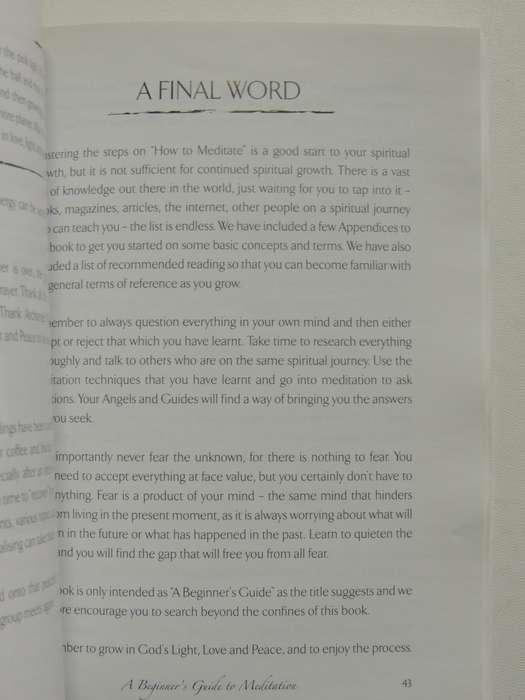 A FINAL WORD
stering the steps on "How to Meditate" is a good start to your spiritual
wth, but it is not sufficient for continued spiritual growth. There is a vast
of knowledge out there in the world, just waiting for you to tap into it –
oks, magazines, articles, the internet, other people on a spiritual journey
can teach you – the list is endless. We have included a few Appendices to
book to get you started on some basic concepts and terms. We have also
uded a list of recommended reading so that you can become familiar with
general terms of reference as you grow.
ember to always question everything in your own mind and then either
pt or reject that which you have learnt. Take time to research everything
oughly and talk to others who are on the same spiritual journey. Use the
itation techniques that you have learnt and go into meditation to ask
tions. Your Angels and Guides will find a way of bringing you the answers
you seek.
importantly never fear the unknown, for there is nothing to fear. You
need to accept everything at face value, but you certainly don't have to
nything. Fear is a product of your mind – the same mind that hinders
om living in the present moment, as it is always worrying about what will
n in the future or what has happened in the past. Learn to quieten the
and you will find the gap that will free you from all fear.
ook is only intended as "A Beginner's Guide" as the title suggests and we
ore encourage you to search beyond the confines of this book.
mber to grow in God's Light, Love and Peace, and to enjoy the process.
A Beginner's Guide to Meditation
43